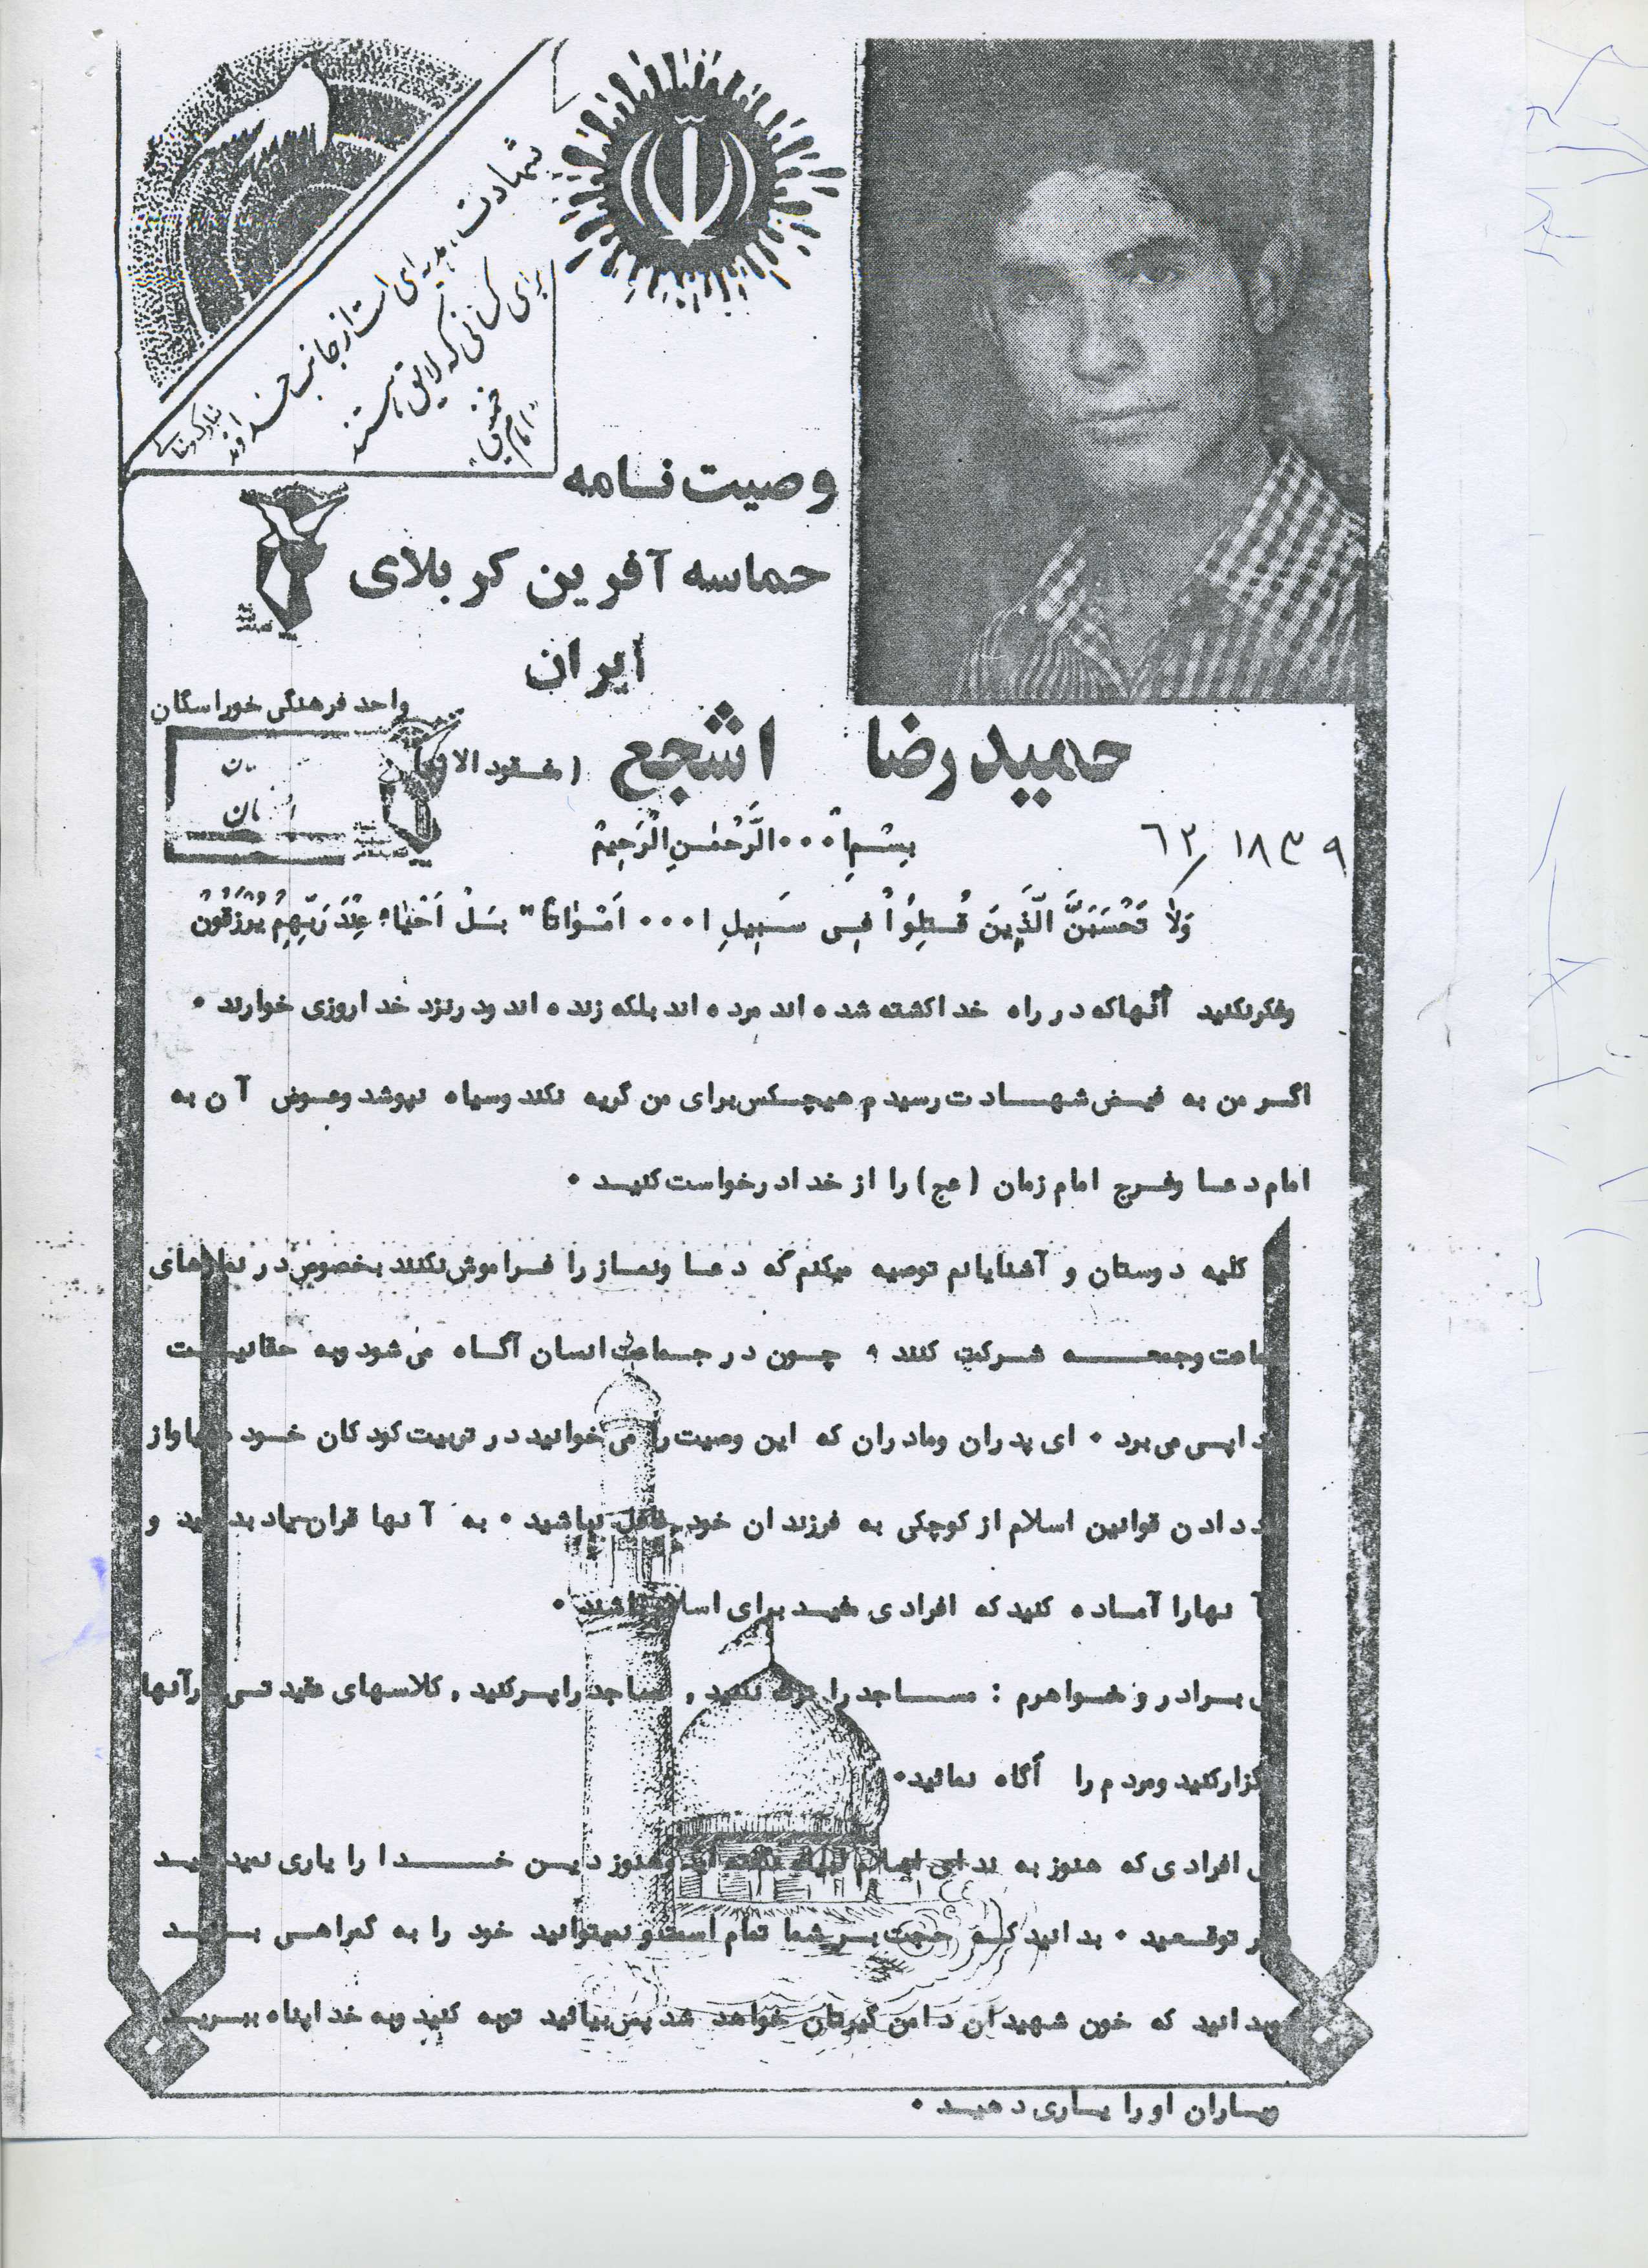 شهادت، هدیه‌ای است از جانب خداوند
برای کسانی که لایق هستند
"امام خمینی"
وصیت‌نامه
حماسه آفرین کربلای
ایران
واحد فرهنگی خوراسگان
حمیدرضا اشجع (مفقود الاثر)
۶۲/۱۸۳۹
بِسْمِ ا... الرَّحْمٰنِ الرَّحِیمْ
وَلاٰ تَحْسَبَنَّ الَّذِینَ قُتِلُوْا فِی سَبِیلِ ا... اَمْوٰاتًا" بَلْ اَحْیٰاءُ عِنْدَ رَبِّهِمْ یُرْزَقُونَ
وفکرنکنید آنهاکه در راه خدا کشته شده اند مرده اند بلکه زنده اند ودرنزد خدا روزی خوارند .
اگر من به فیض شهادت رسیدم هیچکس برای من گریه نکند وسیاه نپوشد وعوض آن به
امام دعا وفرج امام زمان (عج) را از خدا درخواست کنید .
کلیه دوستان و آشنایانم توصیه میکنم که دعا ونماز را فراموش نکنند بخصوص در نمازهای
وجمعه شرکت کنند ، چون در جماعت انسان آگاه می‌شود وبه حقانیت
پی می‌برد . ای پدران ومادران که این وصیت را می‌خوانید در تربیت کودکان خود
دادن قوانین اسلام از کوچکی به فرزندان خود غافل نباشید . به آنها قران یاد بدهید و
آنهارا آماده کنید که افرادی مفید برای اسلام باشند .
برادر و خواهرم : مساجد را ترک نکنید , مساجد را پرکنید , کلاسهای عقیدتی درآنها
ومردم را آگاه نمائید.
افرادی که هنوز به ندای اسلام لبیک نگفته اید وهنوز دین خدا را یاری نمیدهید
بدانید که حجت بر شما تمام است و نمیتوانید خود را به گمراهی بزنید
وبدانید که خون شهیدان دامن گیرتان خواهد شد پس بیائید توبه کنید وبه خدا پناه ببرید
ویاران او را یاری دهید .